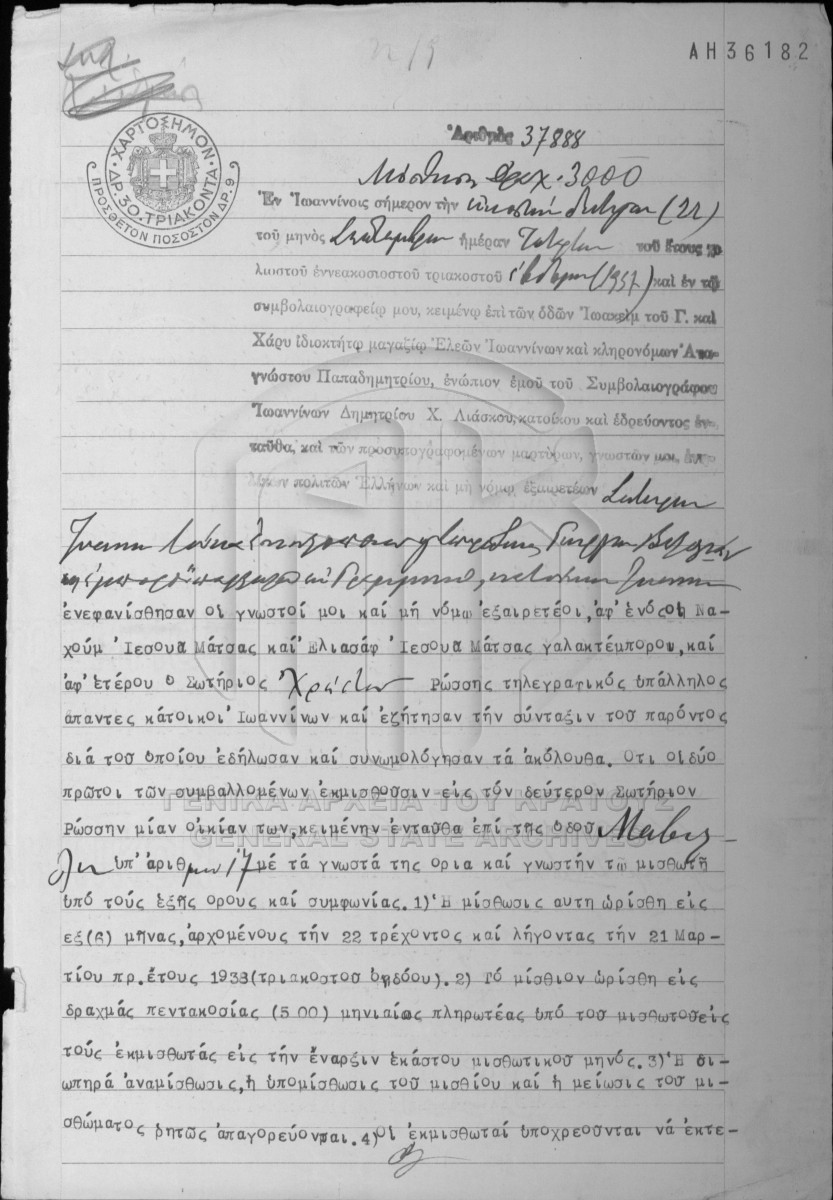 ΑΗ36182
ΧΑΡΤΟΣΗΜΟΝ
ΔΡ. 30. ΤΡΙΑΚΟΝΤΑ
ΠΡΟΣΘΕΤΟΝ ΠΟΣΟΣΤΟΝ ΔΡ. 9
Ἀριθμὸς 37888
Μίσθωσις Δραχ. 3000
Ἐν Ἰωαννίνοις σήμερον τὴν εἰκοστὴν δευτέραν (22)
τοῦ μηνὸς Σεπτεμβρίου ἡμέραν Τετάρτην τοῦ ἔτους χι-
λιοστοῦ ἐννεακοσιοστοῦ τριακοστοῦ ἑβδόμου (1937) καὶ ἐν τῷ
συμβολαιογραφείῳ μου, κειμένῳ ἐπὶ τῶν ὁδῶν Ἰωακεὶμ τοῦ Γ. καὶ
Χάρυ ἰδιοκτήτῳ μαγαζίῳ Ἐλεῶν Ἰωαννίνων καὶ κληρονόμων Ἀνα-
γνώστου Παπαδημητρίου, ἐνώπιον ἐμοῦ τοῦ Συμβολαιογράφου
Ἰωαννίνων Δημητρίου Χ. Λιάσκου, κατοίκου καὶ ἑδρεύοντος ἐν-
ταῦθα, καὶ τῶν προσυπογραφομένων μαρτύρων, γνωστῶν μοι,
πολιτῶν Ἑλλήνων καὶ μὴ νόμῳ ἐξαιρετέων
ἐνεφανίσθησαν οἱ γνωστοί μοι καί μή νόμῳ ἐξαιρετέοι, ἀφ' ἑνός οἱ Να-
χούμ Ἰεσουᾶ Μάτσας καί Ἐλιασάφ Ἰεσουᾶ Μάτσας γαλακτέμποροι, καί
ἀφ' ἑτέρου ὁ Σωτήριος Χρήστου Ρώσσης τηλεγραφικός ὑπάλληλος
ἅπαντες κάτοικοι Ἰωαννίνων καί ἐζήτησαν τήν σύνταξιν τοῦ παρόντος
διά τοῦ ὁποίου ἐδήλωσαν καί συνωμολόγησαν τά ἀκόλουθα. Ὅτι οἱ δύο
πρῶτοι τῶν συμβαλλομένων ἐκμισθοῦσιν εἰς τόν δεύτερον Σωτήριον
ΓΕΝΙΚΑ ΑΡΧΕΙΑ ΤΟΥ ΚΡΑΤΟΥΣ
Ρώσσην μίαν οἰκίαν των, κειμένην ἐνταῦθα ἐπί τῆς ὁδοῦ Μαβίλ-
GENERAL STATE ARCHIVES
λη ὑπ' ἀριθμὸν 17 μέ τά γνωστά της ὅρια καί γνωστήν τῷ μισθωτῇ
ὑπό τούς ἑξῆς ὅρους καί συμφωνίας. 1) Ἡ μίσθωσις αὕτη ὡρίσθη εἰς
ἕξ (6) μῆνας, ἀρχομένους τήν 22 τρέχοντος καί λήγοντας τήν 21 Μαρ-
τίου πρ. ἔτους 1938 (τριακοστοῦ ὀγδόου). 2) Τό μίσθιον ὡρίσθη εἰς
δραχμάς πεντακοσίας (500) μηνιαίως πληρωτέας ὑπό τοῦ μισθωτοῦ εἰς
τούς ἐκμισθωτάς εἰς τήν ἔναρξιν ἑκάστου μισθωτικοῦ μηνός. 3) Ἡ σι-
ωπηρά ἀναμίσθωσις, ἡ ὑπομίσθωσις τοῦ μισθίου καί ἡ μείωσις τοῦ μι-
σθώματος ρητῶς ἀπαγορεύονται. 4) Οἱ ἐκμισθωταί ὑποχρεοῦνται νά ἐκτε-